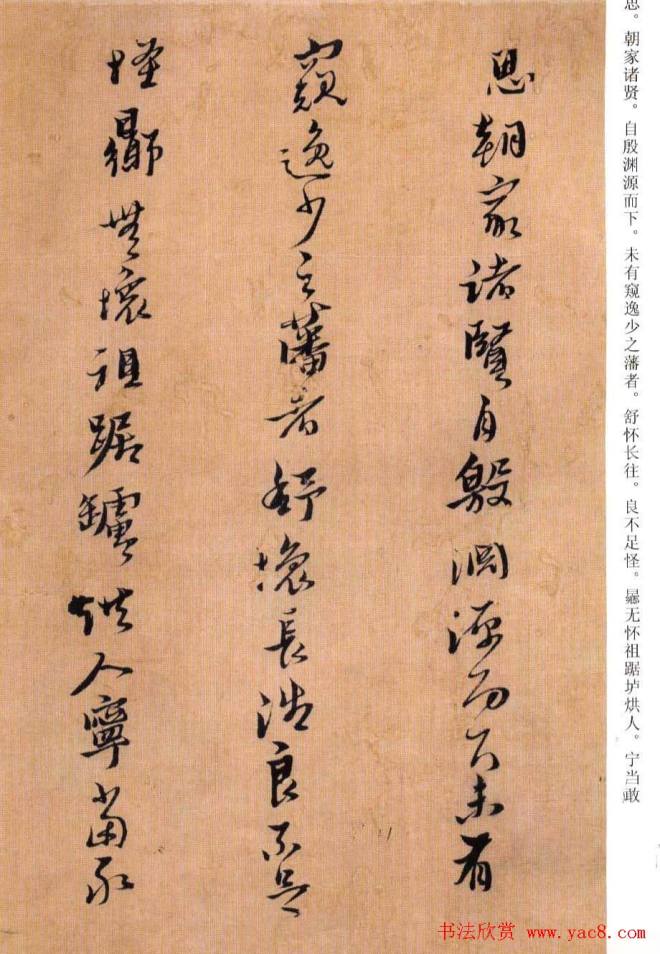 思。朝家诸贤。自殷渊源而下。未有窥逸少之藩者。舒怀长往。良不足怪。曏无怀祖踞垆烘人。宁当敢
思朝家諸賢自殷渊源而下未有
窺逸少之藩者舒懷長往良不足
怪曏無懷祖踞罏烘人寧當敢
书法欣赏 www.yac8.com